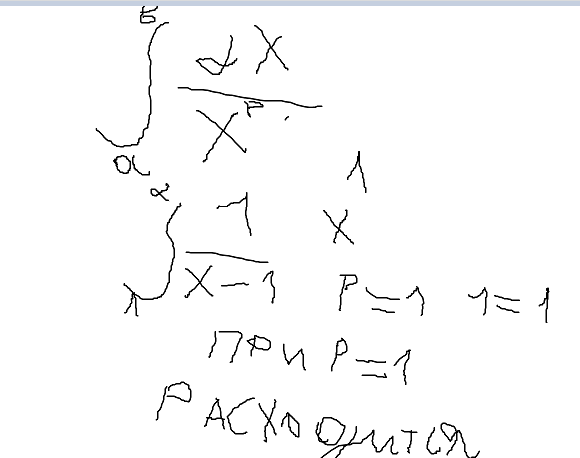 ∫ₐᵇ dx / xᴾ
1
∫₁² 1 / (x-1)   x
P=1   1=1
при P=1
РАСХОДИТСЯ